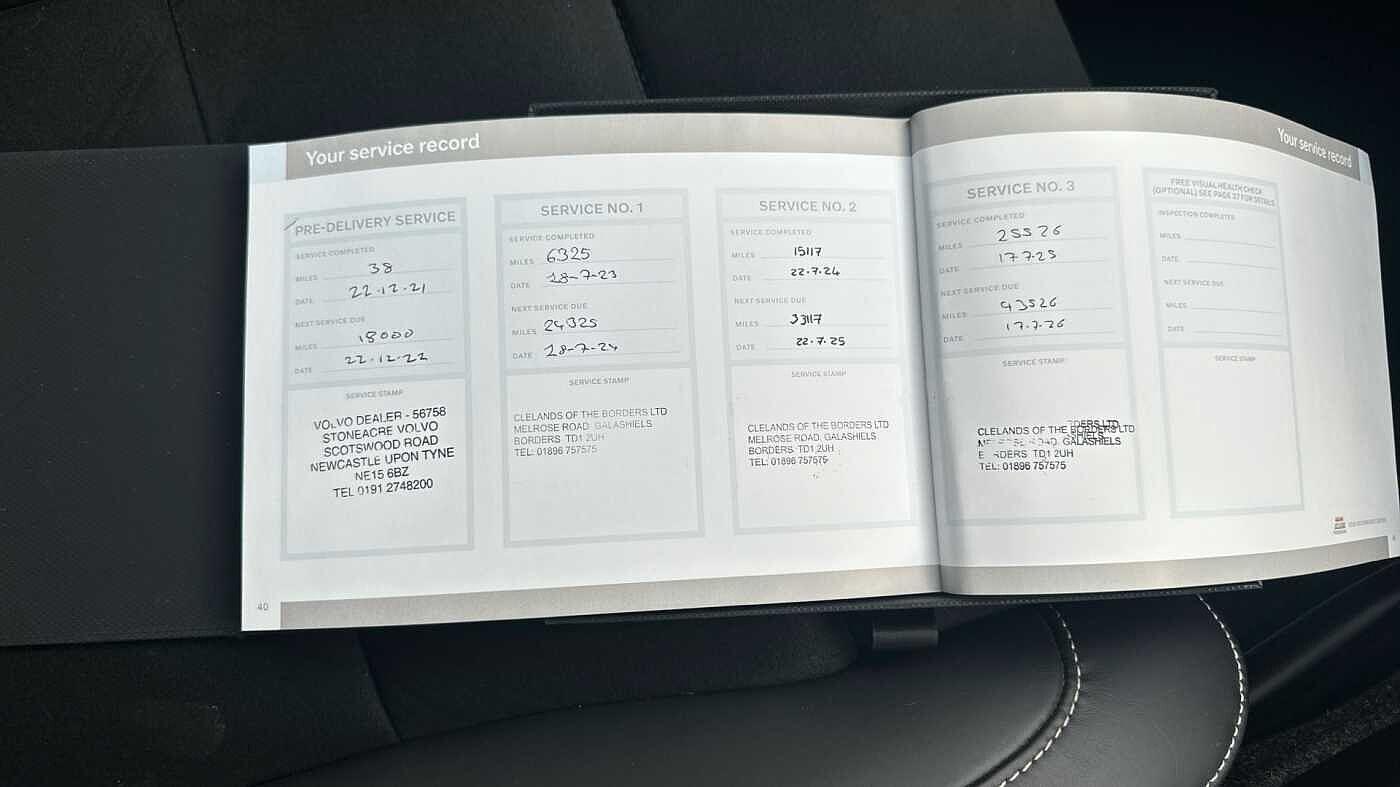 Your service record
PRE-DELIVERY SERVICE
SERVICE COMPLETED
MILES 38
DATE 22.12.21
NEXT SERVICE DUE
MILES 18000
DATE 22.12.22
SERVICE STAMP
VOLVO DEALER - 56758
STONEACRE VOLVO
SCOTSWOOD ROAD
NEWCASTLE UPON TYNE
NE15 6BZ
TEL 0191 2748200
SERVICE NO. 1
SERVICE COMPLETED
MILES 6325
DATE 18-7-23
NEXT SERVICE DUE
MILES 24325
DATE 18-7-24
SERVICE STAMP
CLELANDS OF THE BORDERS LTD
MELROSE ROAD GALASHIELS
BORDERS TD1 2UH
TEL: 01896 757575
SERVICE NO. 2
SERVICE COMPLETED
MILES 15117
DATE 22.7.24
NEXT SERVICE DUE
MILES 33117
DATE 22.7.25
SERVICE STAMP
CLELANDS OF THE BORDERS LTD
MELROSE ROAD, GALASHIELS
BORDERS TD1 2UH
TEL: 01896 757575
40
Your service record
SERVICE NO. 3
SERVICE COMPLETED
MILES 25526
DATE 17.7.25
NEXT SERVICE DUE
MILES 43526
DATE 17.7.26
SERVICE STAMP
CLELANDS OF THE BORDERS LTD
GALASHIELS
TD1 2UH
TEL: 01896 757575
FREE VISUAL HEALTH CHECK
(OPTIONAL) SEE PAGE 37 FOR DETAILS
INSPECTION COMPLETED
MILES
DATE
NEXT SERVICE DUE
MILES
DATE
SERVICE STAMP